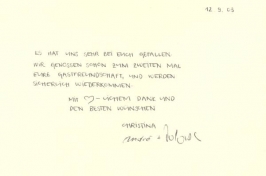 ES HAT UNS SEHR BEI EUCH GEFALLEN.
WIR GENOSSEN SCHON ZUM ZWEITEN MAL
EURE GASTFREUNDSCHAFT UND WERDEN
SICHERLICH WIEDERKOMMEN.
MIT ♡-LICHEM DANK UND
DEN BESTEN WÜNSCHEN
CHRISTINA